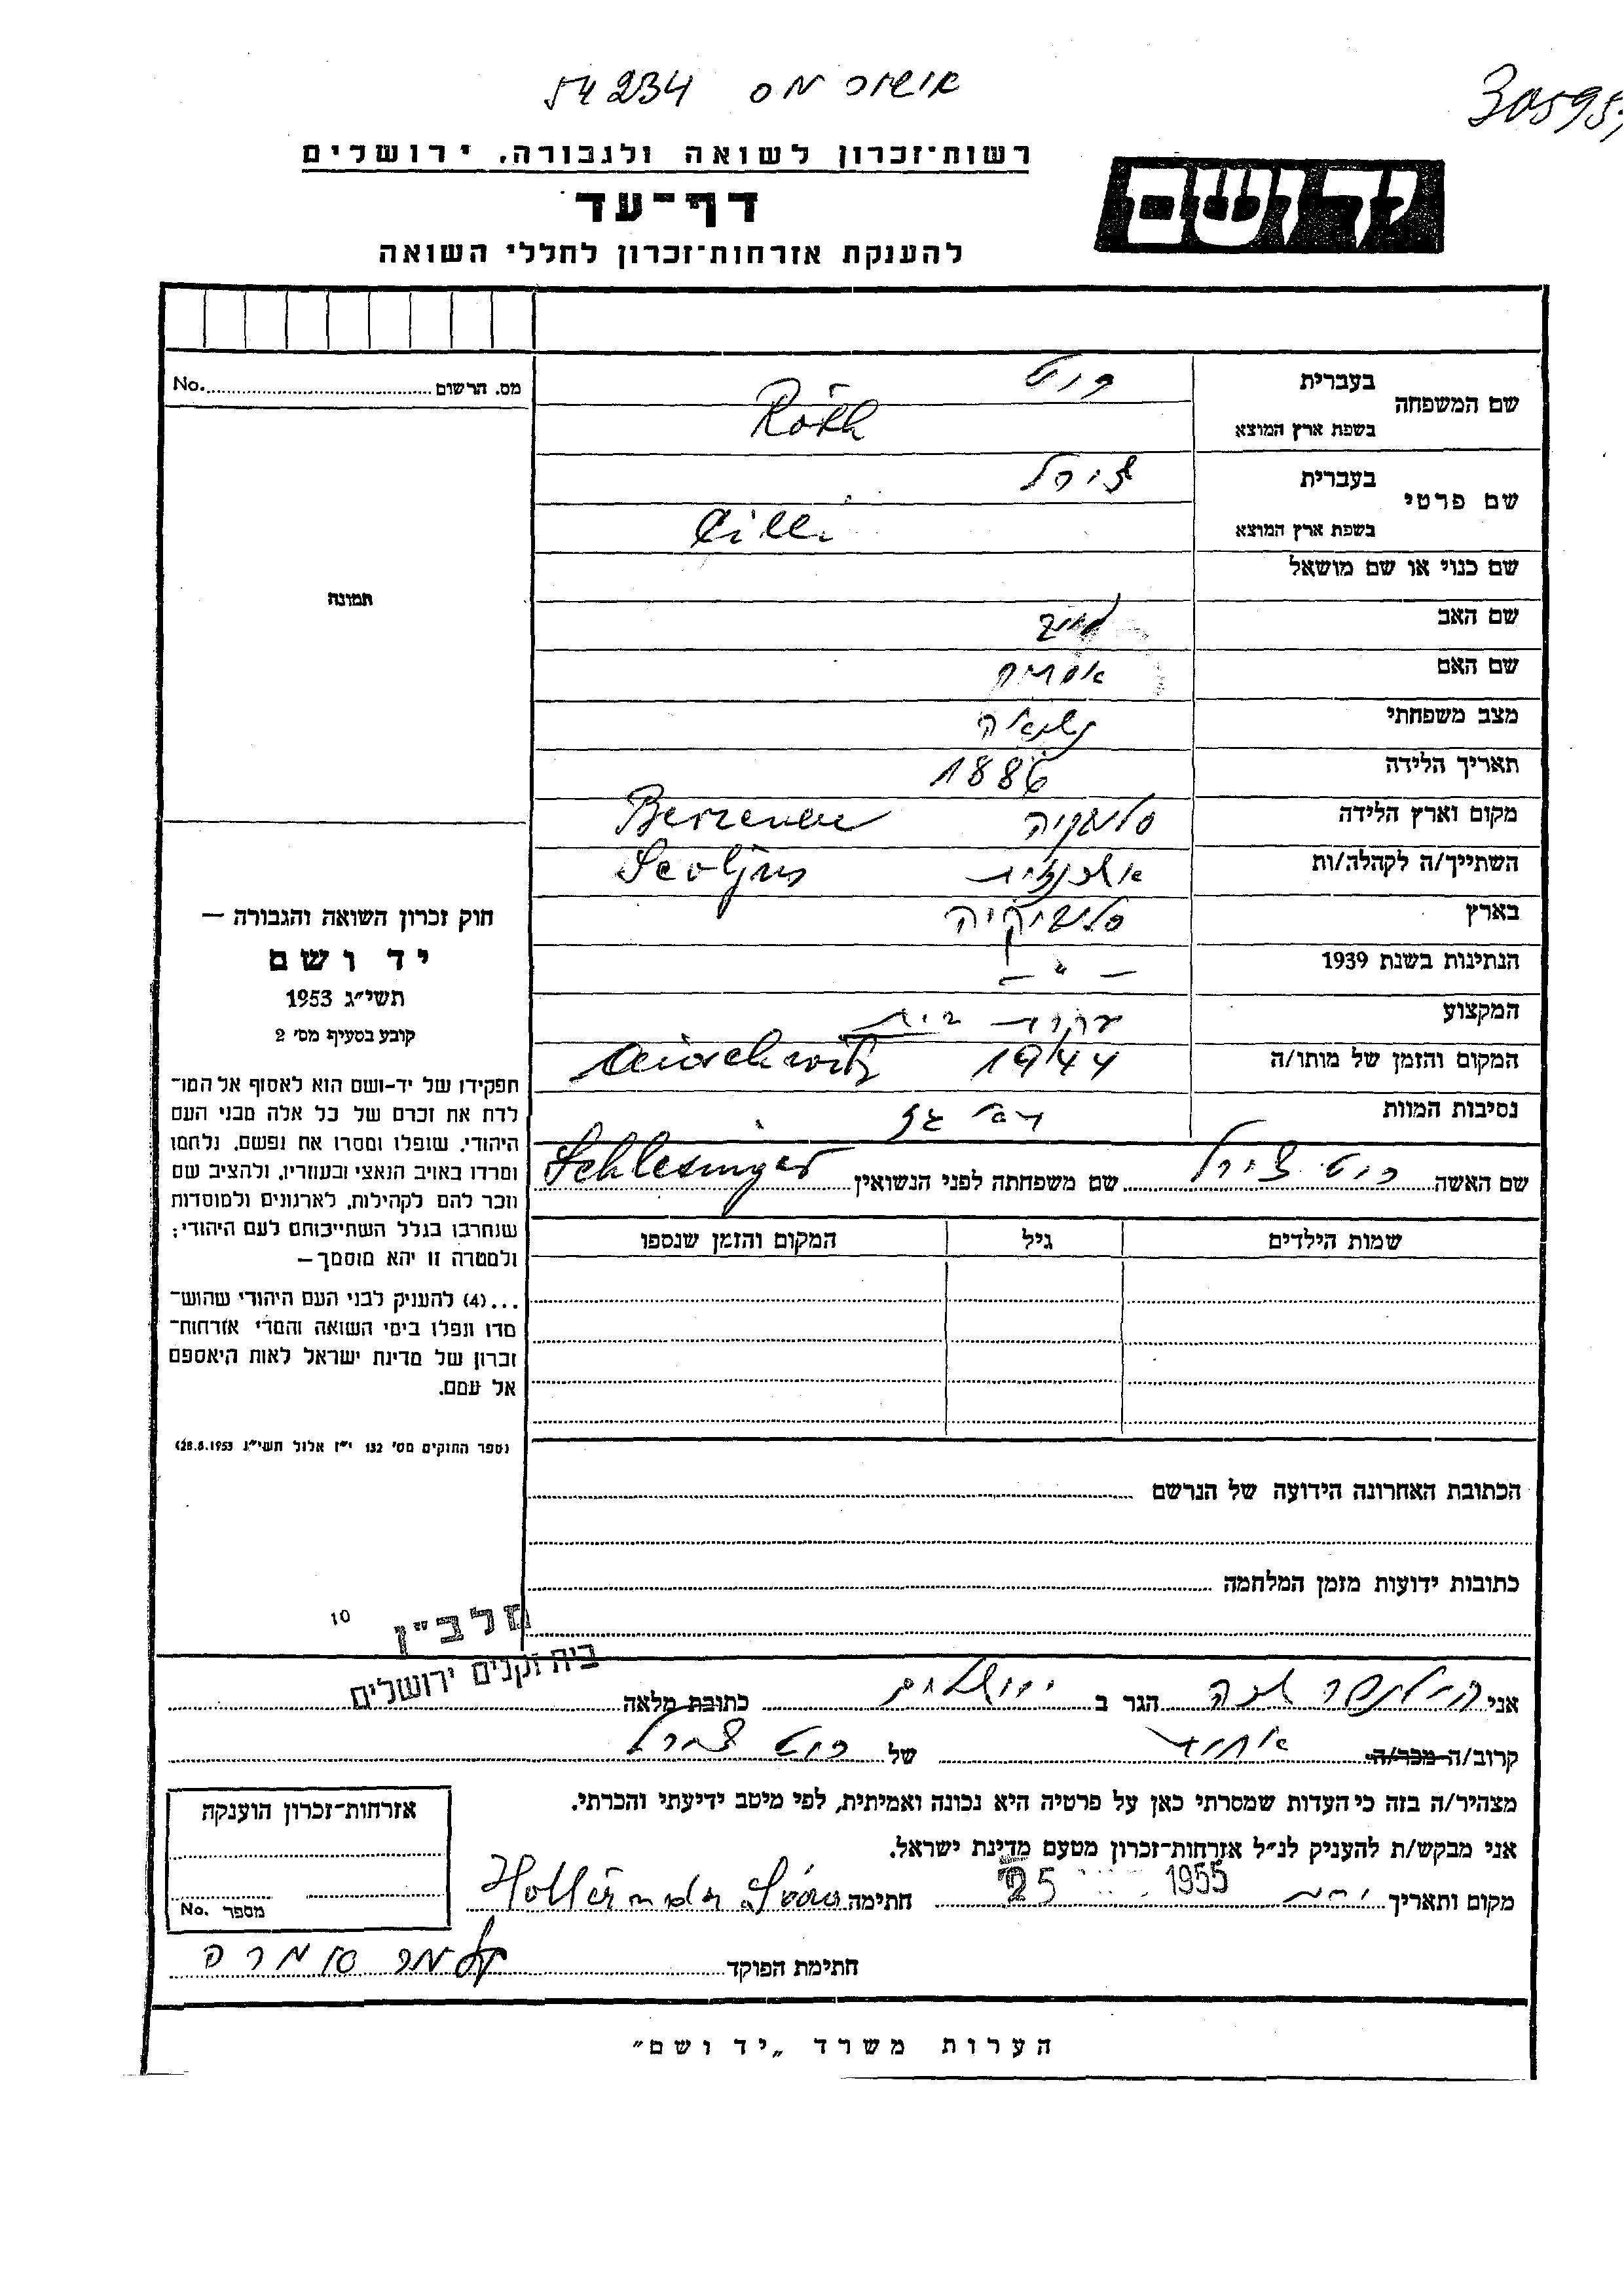 אישור מס 54234
רשות־זכרון לשואה ולגבורה, ירושלים
יד ושם
דף־עד
להענקת אזרחות־זכרון לחללי השואה
שם המשפחה
בעברית רוט
בשפת ארץ המוצא Róth
שם פרטי
בעברית צירל
בשפת ארץ המוצא Cilli
שם כנוי או שם מושאל
שם האב
שם האם אסתר
מצב משפחתי נשואה
תאריך הלידה 1886
מקום וארץ הלידה סלובקיה
השתייך/ה לקהלה/ות אשכנזית
בארץ סלובקיה
הנתינות בשנת 1939 — " —
המקצוע עקרת בית
המקום והזמן של מותו/ה 1944 Auschwitz
נסיבות המוות
שם האשה רוט צירל שם משפחתה לפני הנשואין Schlesinger
שמות הילדים גיל המקום והזמן שנספו
הכתובת האחרונה הידועה של הנרשם
כתובות ידועות מזמן המלחמה
מס. הרשום No.
תמונה
חוק זכרון השואה והגבורה —
יד ושם
תשי״ג 1953
קובע בסעיף מס׳ 2
תפקידו של יד־ושם הוא לאסוף אל המו־
לדת את זכרם של כל אלה מבני העם
היהודי, שנפלו ומסרו את נפשם, נלחמו
ומרדו באויב הנאצי ובעוזריו, ולהציב שם
וזכר להם לקהילות, לארגונים ולמוסדות
שנחרבו בגלל השתייכותם לעם היהודי;
ולמטרה זו יהא מוסמך —
...(4) להעניק לבני העם היהודי שהוש־
מדו ונפלו בימי השואה והמרי אזרחות־
זכרון של מדינת ישראל לאות היאספם
אל עמם.
(ספר החוקים מס׳ 132 י״ז אלול תשי״ג 28.8.1953)
10
מלב״ן
בית זקנים ירושלים
אני הולנדר הגר ב ירושלים כתובת מלאה
קרוב/ה מכר/ה של רוט צירל
מצהיר/ה בזה כי העדות שמסרתי כאן על פרטיה היא נכונה ואמיתית, לפי מיטב ידיעתי והכרתי.
אני מבקש/ת להעניק לנ״ל אזרחות־זכרון מטעם מדינת ישראל.
מקום ותאריך 25 1955 חתימה Holländer
חתימת הפוקד
אזרחות־זכרון הוענקה
מספר No.
הערות משרד „יד ושם״